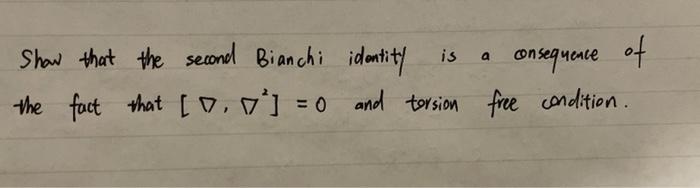 Show that the second Bianchi identity is a consequence of
the fact that [∇, ∇²] = 0 and torsion free condition.